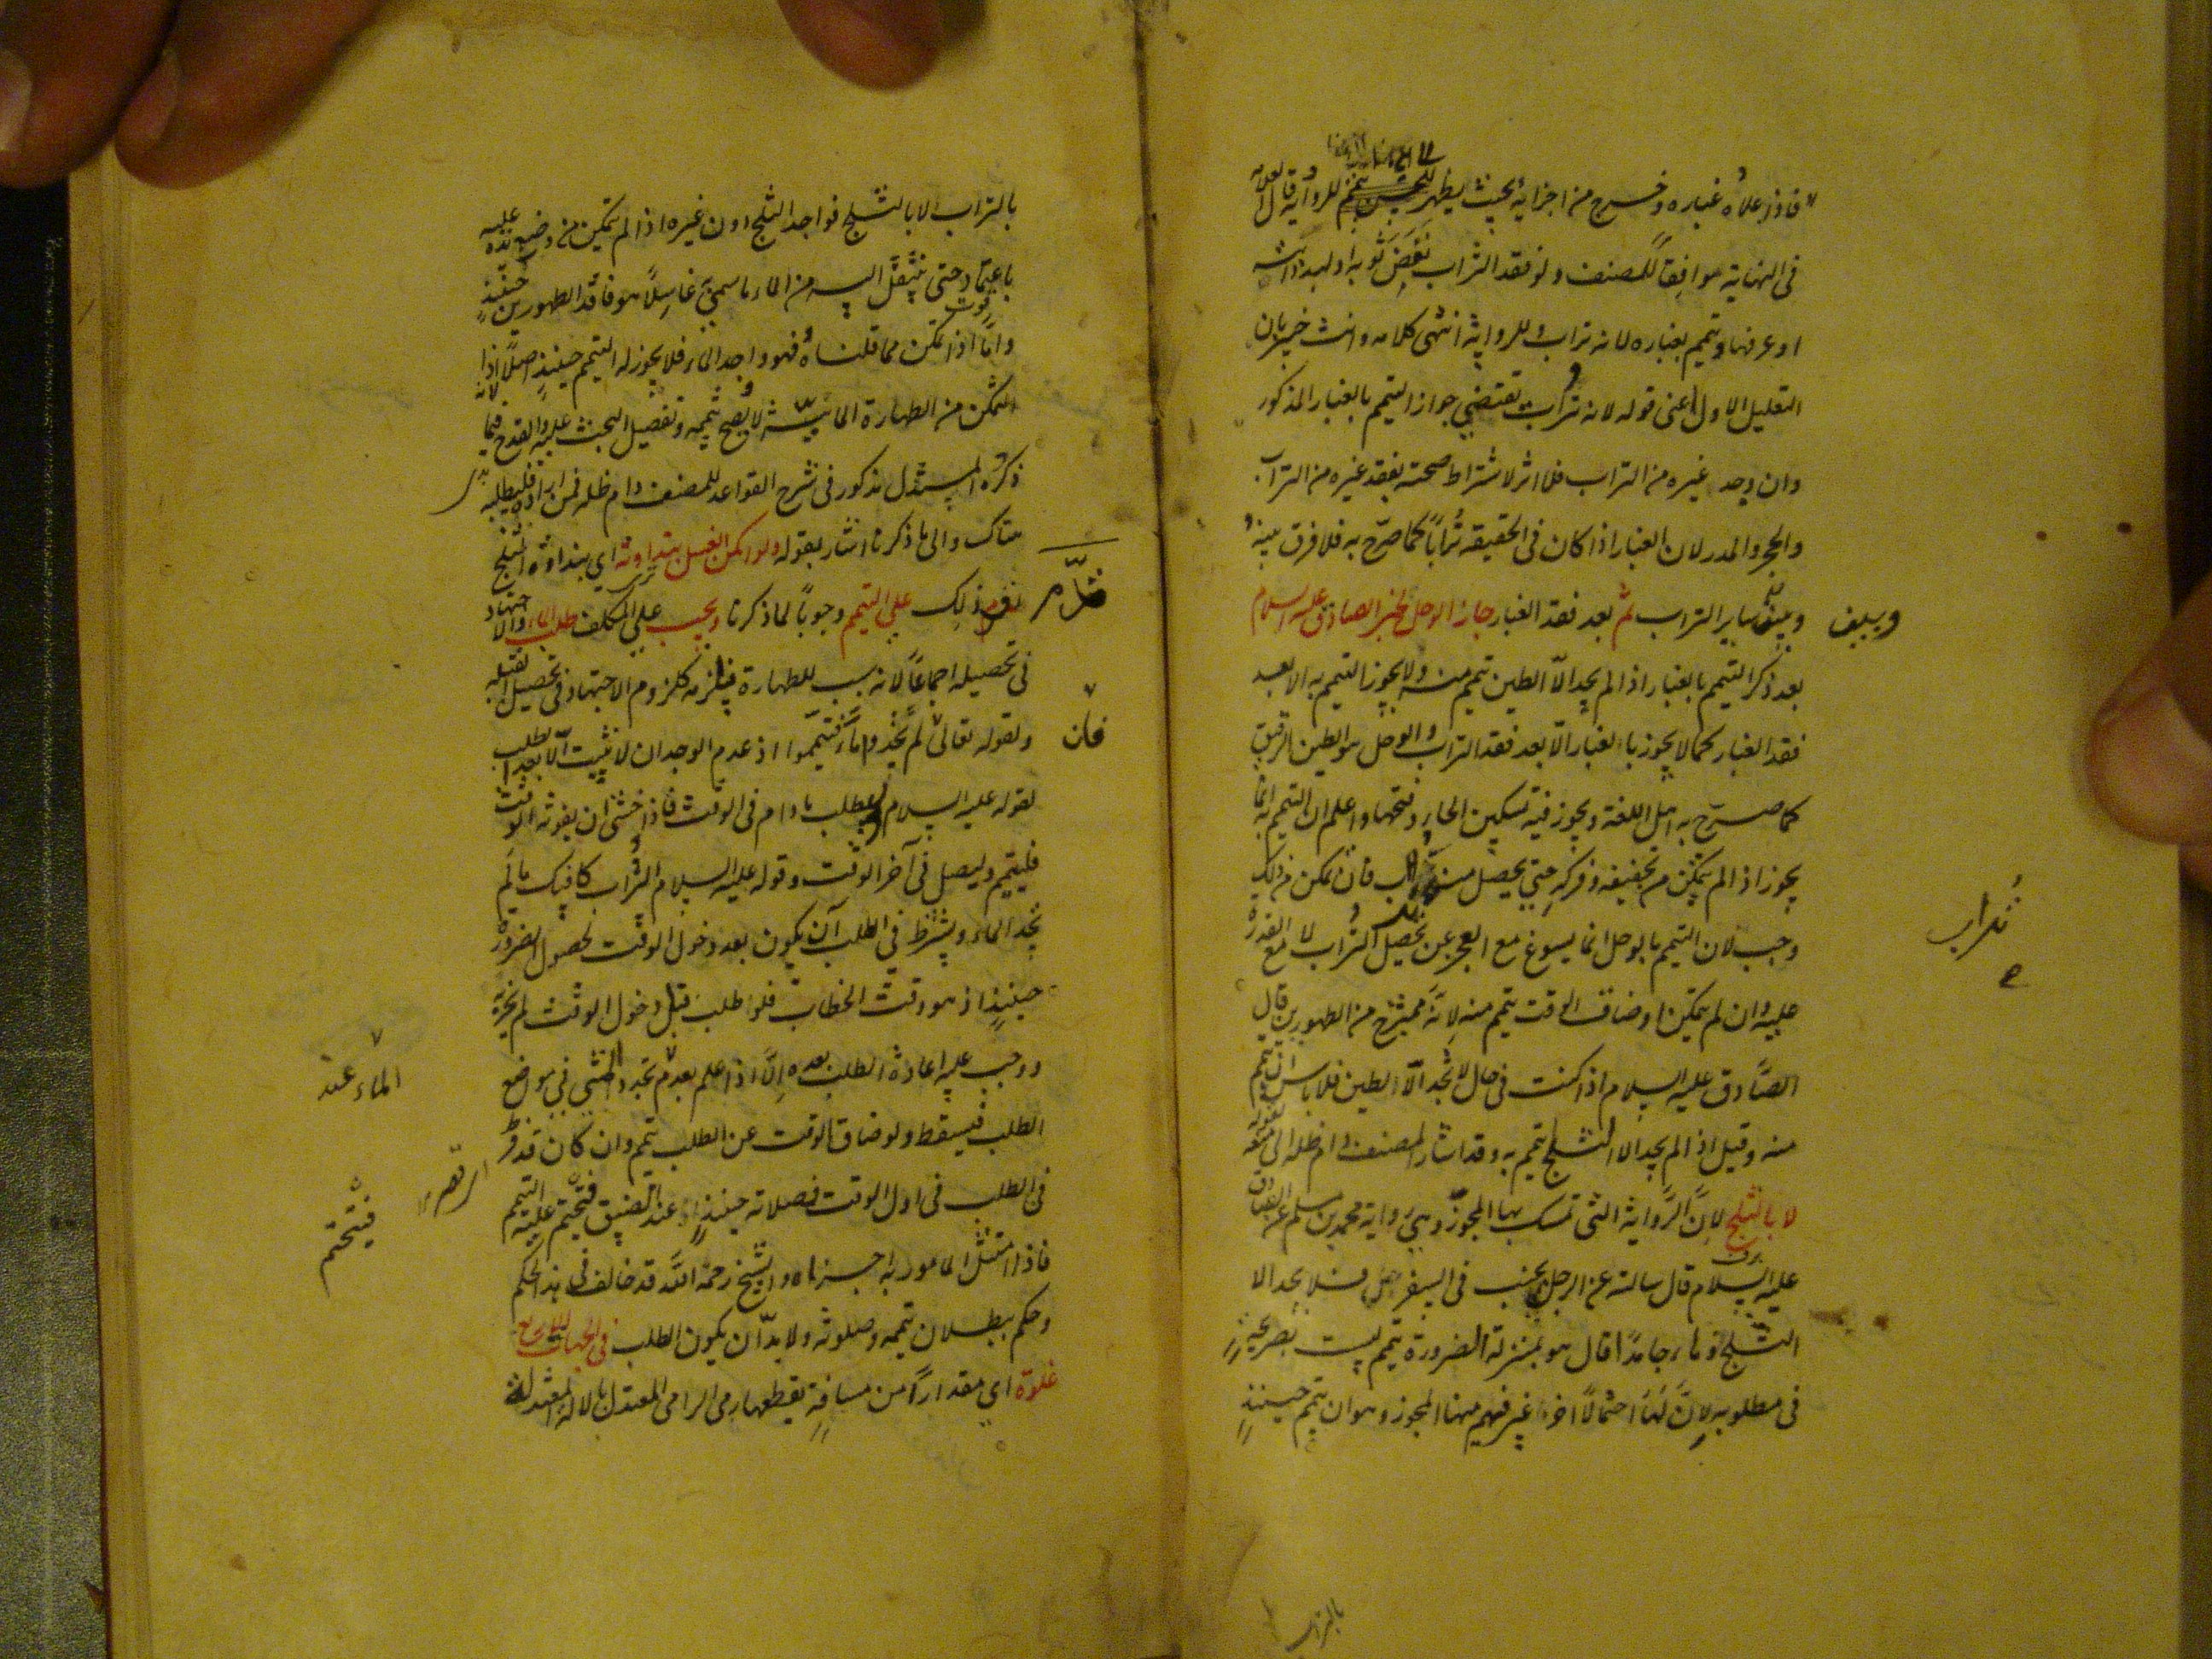 فاذا علاه غباره وخرج من اجزائه بحيث يظهر للحس يتمم للرواية قال العلامة
فى النهاية موافقاً للمصنف ولو فقد التراب نفض ثوبه او لبد دابته
او عرفها وتيمم بغباره لانه تراب وللرواية انتهى كلامه وانت خبير بان
التعليل الاول اعنى قوله لانه تراب يقتضي جواز التيمم بالغبار المذكور
وان وجد غيره من التراب فلا اثر لاشتراط صحته بفقد غيره من التراب
والحجر والمدر لان الغبار اذا كان فى الحقيقة تراباً كما صرح به فلا فرق بينه
وبين ساير التراب ثم بعد فقد الغبار جاز الوحل لخبر الصادق عليه السلام
وبين
بعد ذكر التيمم بالغبار اذا لم يجد الّا الطين تيمم منه ولا يجوز التيمم به الا بعد
فقد الغبار كما لا يجوز بالغبار الّا بعد فقد التراب والوحل هو الطين الرقيق
كما صرّح به اهل اللغة ويجوز فيه تسكين الحاء وفتحها واعلم ان التيمم به انما
يجوز اذا لم يتمكن من تجفيفه وفركه حتي يحصل منه تراب فان تمكن من ذلك
تراب
وجب لان التيمم بالوحل انما يسوغ مع العجز عن تحصيل التراب لا مع القدرة
عليه وان لم يتمكن او ضاق الوقت تيمم منه لانّه ممتزج من الطهورين قال
الصّادق عليه السلام اذا كنت فى حال لا تجد الّا الطين فلا باس ان تيمم
منه وقيل اذا لم يجد الا الثلج تيمم به وقد اشار المصنف دام ظله الى منعه بقوله
لا بالثلج لانّ الرّواية التى تمسك بها المجوّز وهي رواية محمد بن مسلم عن الصادق
عليه السلام قال سالته عن الرجل يجنب فى السفر فلا يجد الا
الثلج او ماء جامداً قال هو بمنزلة الضرورة تيمم ليست بصريحة
فى مطلوبه لانّ لها احتمالاً اخر غير فهم منها المجوز وهو ان يتمم حينئذٍ
بالتراب
بالتراب لا بالثلج فواجد الثلج دون غيره اذا لم يتمكن من وضع يده عليه
باعتماد حتى ينتقل اليه من الماء ما سمي غاسلاً هو فاقد الطهورين حينئذٍ
وامّا اذا تمكن مما قلناه فهو واجد الماء فلا يجوز له التيمم حينئذٍ اصلاً اذا
التمكن من الطهارة المائية لا يصح تيممه وتفصيل البحث عليه والقدح فيما
ذكره المستدل مذكور فى شرح القواعد للمصنف دام ظله فمن اراده فليطلبه
هناك والى ما ذكرنا اشار بقوله ولو امكن الغسل بنداوته اي بنداوة الثلج
قدّم ذلك على التيمم وجوباً لما ذكرنا ويجب على المكلف طلب الماء والاجتهاد
قدّم
فى تحصيله اجماعاً لانه سبب للطهارة فيلزمه كلزوم الاجتهاد فى تحصيل القبلة
ولقوله تعالى لم تجدوا ماءً فتيمموا اذ عدم الوجدان لا يثبت الّا بعد الطلب
فان
لقوله عليه السلام فليطلب ما دام فى الوقت فاذا خشى ان يفوته الوقت
فليتيمم وليصل فى آخر الوقت وقوله عليه السلام التراب كافيك ما لم
تجد الماء ويشترط فى الطلب ان يكون بعد دخول الوقت لحصول الضرورة
حينئذٍ اذ هو وقت الخطاب فلو طلب قبل دخول الوقت لم يجزئه
ووجب عليه اعادة الطلب بعده الّا اذا علم بعدم تجدد الشئ فى مواضع
الماء عند
الطلب فيسقط ولو ضاق الوقت عن الطلب تيمم وان كان قد فرط
فى الطلب فى اول الوقت فصلاته حينئذٍ اذ عند التضيق فيتحتم عليه التيمم
فيتحتم
فاذا امتثل المامور به اجزاه والشيخ رحمه اللّه قد خالف فى هذا الحكم
وحكم ببطلان تيممه وصلوته ولا بدّ ان يكون الطلب فى الجهات الاربع
غلوة اي مقداراً من مسافةٍ يقطعها رمى الرامى المعتدل بالالة المعتدلة